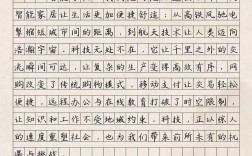 智能家居让生活更加便捷舒适;从高铁风驰电
掣缩短城市间的距离,到航天技术让人类迈向
浩瀚宇宙,科技无处不在,它让千里之外的交
流瞬间可达,让复杂的生产变得高效有序,网
购改变了传统购物模式,移动支付让交易轻松
便捷,远程办公与在线教育打破了时空限制,
让知识和工作不受地域约束,科技,正以惊人
的速度重塑社会,也为我们带来前所未有的机
遇与挑战。